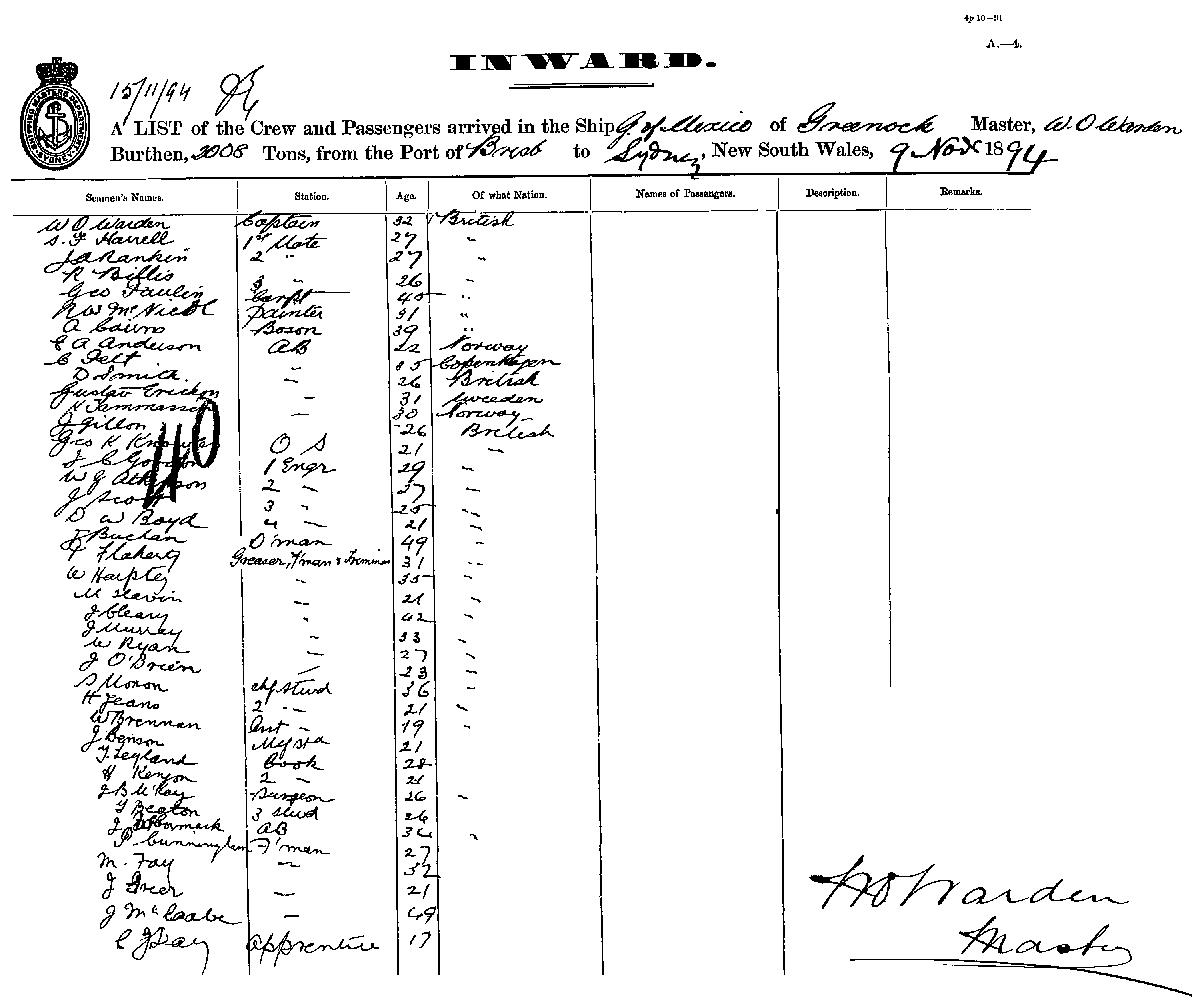 4p 10—91
A.—4.
INWARD.
15/11/94
A LIST of the Crew and Passengers arrived in the Ship G. of Mexico of Greenock Master, W. O Warden
Burthen, 3008 Tons, from the Port of Brisb to Sydney, New South Wales, 9 Nov 1894
Seamen's Names. Station. Age. Of what Nation. Names of Passengers. Description. Remarks.
W O Warden Captain 32 British
S. F Harrell 1st Mate 27 "
J A Rankin 2 " 27 "
R Billis 3 " 26 "
Geo Paulin Carpt 45 "
R W McNicol Painter 31 "
A Cairns Boson 39 "
C A Anderson AB 22 Norway
C Felt " 35 Copenhagen
D Smith " 26 British
Gustav Erickson 31 Sweeden
K Tammassen " 30 Norway
J Gillon 26 British
Geo K O S 21 "
J C Gordon 1 Engr 29 "
W G Atkinson 2 " 37 "
J Scott 3 " 25 "
D W Boyd 4 " 21 "
J Buchan D'man 49 "
Flaherty Greaser, F'man & Trimmer 31 "
W " 35 "
M Slavin " 21 "
J Cleary " 42 "
J Murray " 33 "
W Ryan " 27 "
J O'Brien " 23 "
S Moxon chf stwd 36 "
H Jeans 2 " 21 "
W Brennan Asst " 19 "
J Benson 21
T. Leyland Cook 28
H Kenyon 2 " 21
J B McKay Surgeon 26 "
J Beaton 3 stwd 26
J McCormack AB 34 "
P Cunningham F'man 27
M. Fay " 32
J Greer " 21
J McCaabe " 49
C J Day Apprentice 17
40
W O Warden
Master